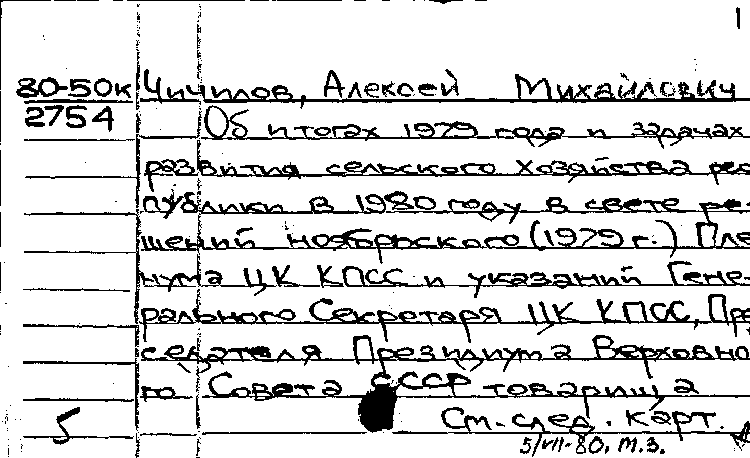 1
80-50к Чичилов, Алексей Михайлович
2754 Об итогах 1979 года и задачах
развития сельского хозяйства рес
публики в 1980 году в свете ре-
шений ноябрьского (1979 г.) Пле
нума ЦК КПСС и указаний Гене-
рального Секретаря ЦК КПСС, Пре
седателя Президиума Верховно
го Совета СССР товарища
5 См. след. карт.
5/VII-80. М.З.